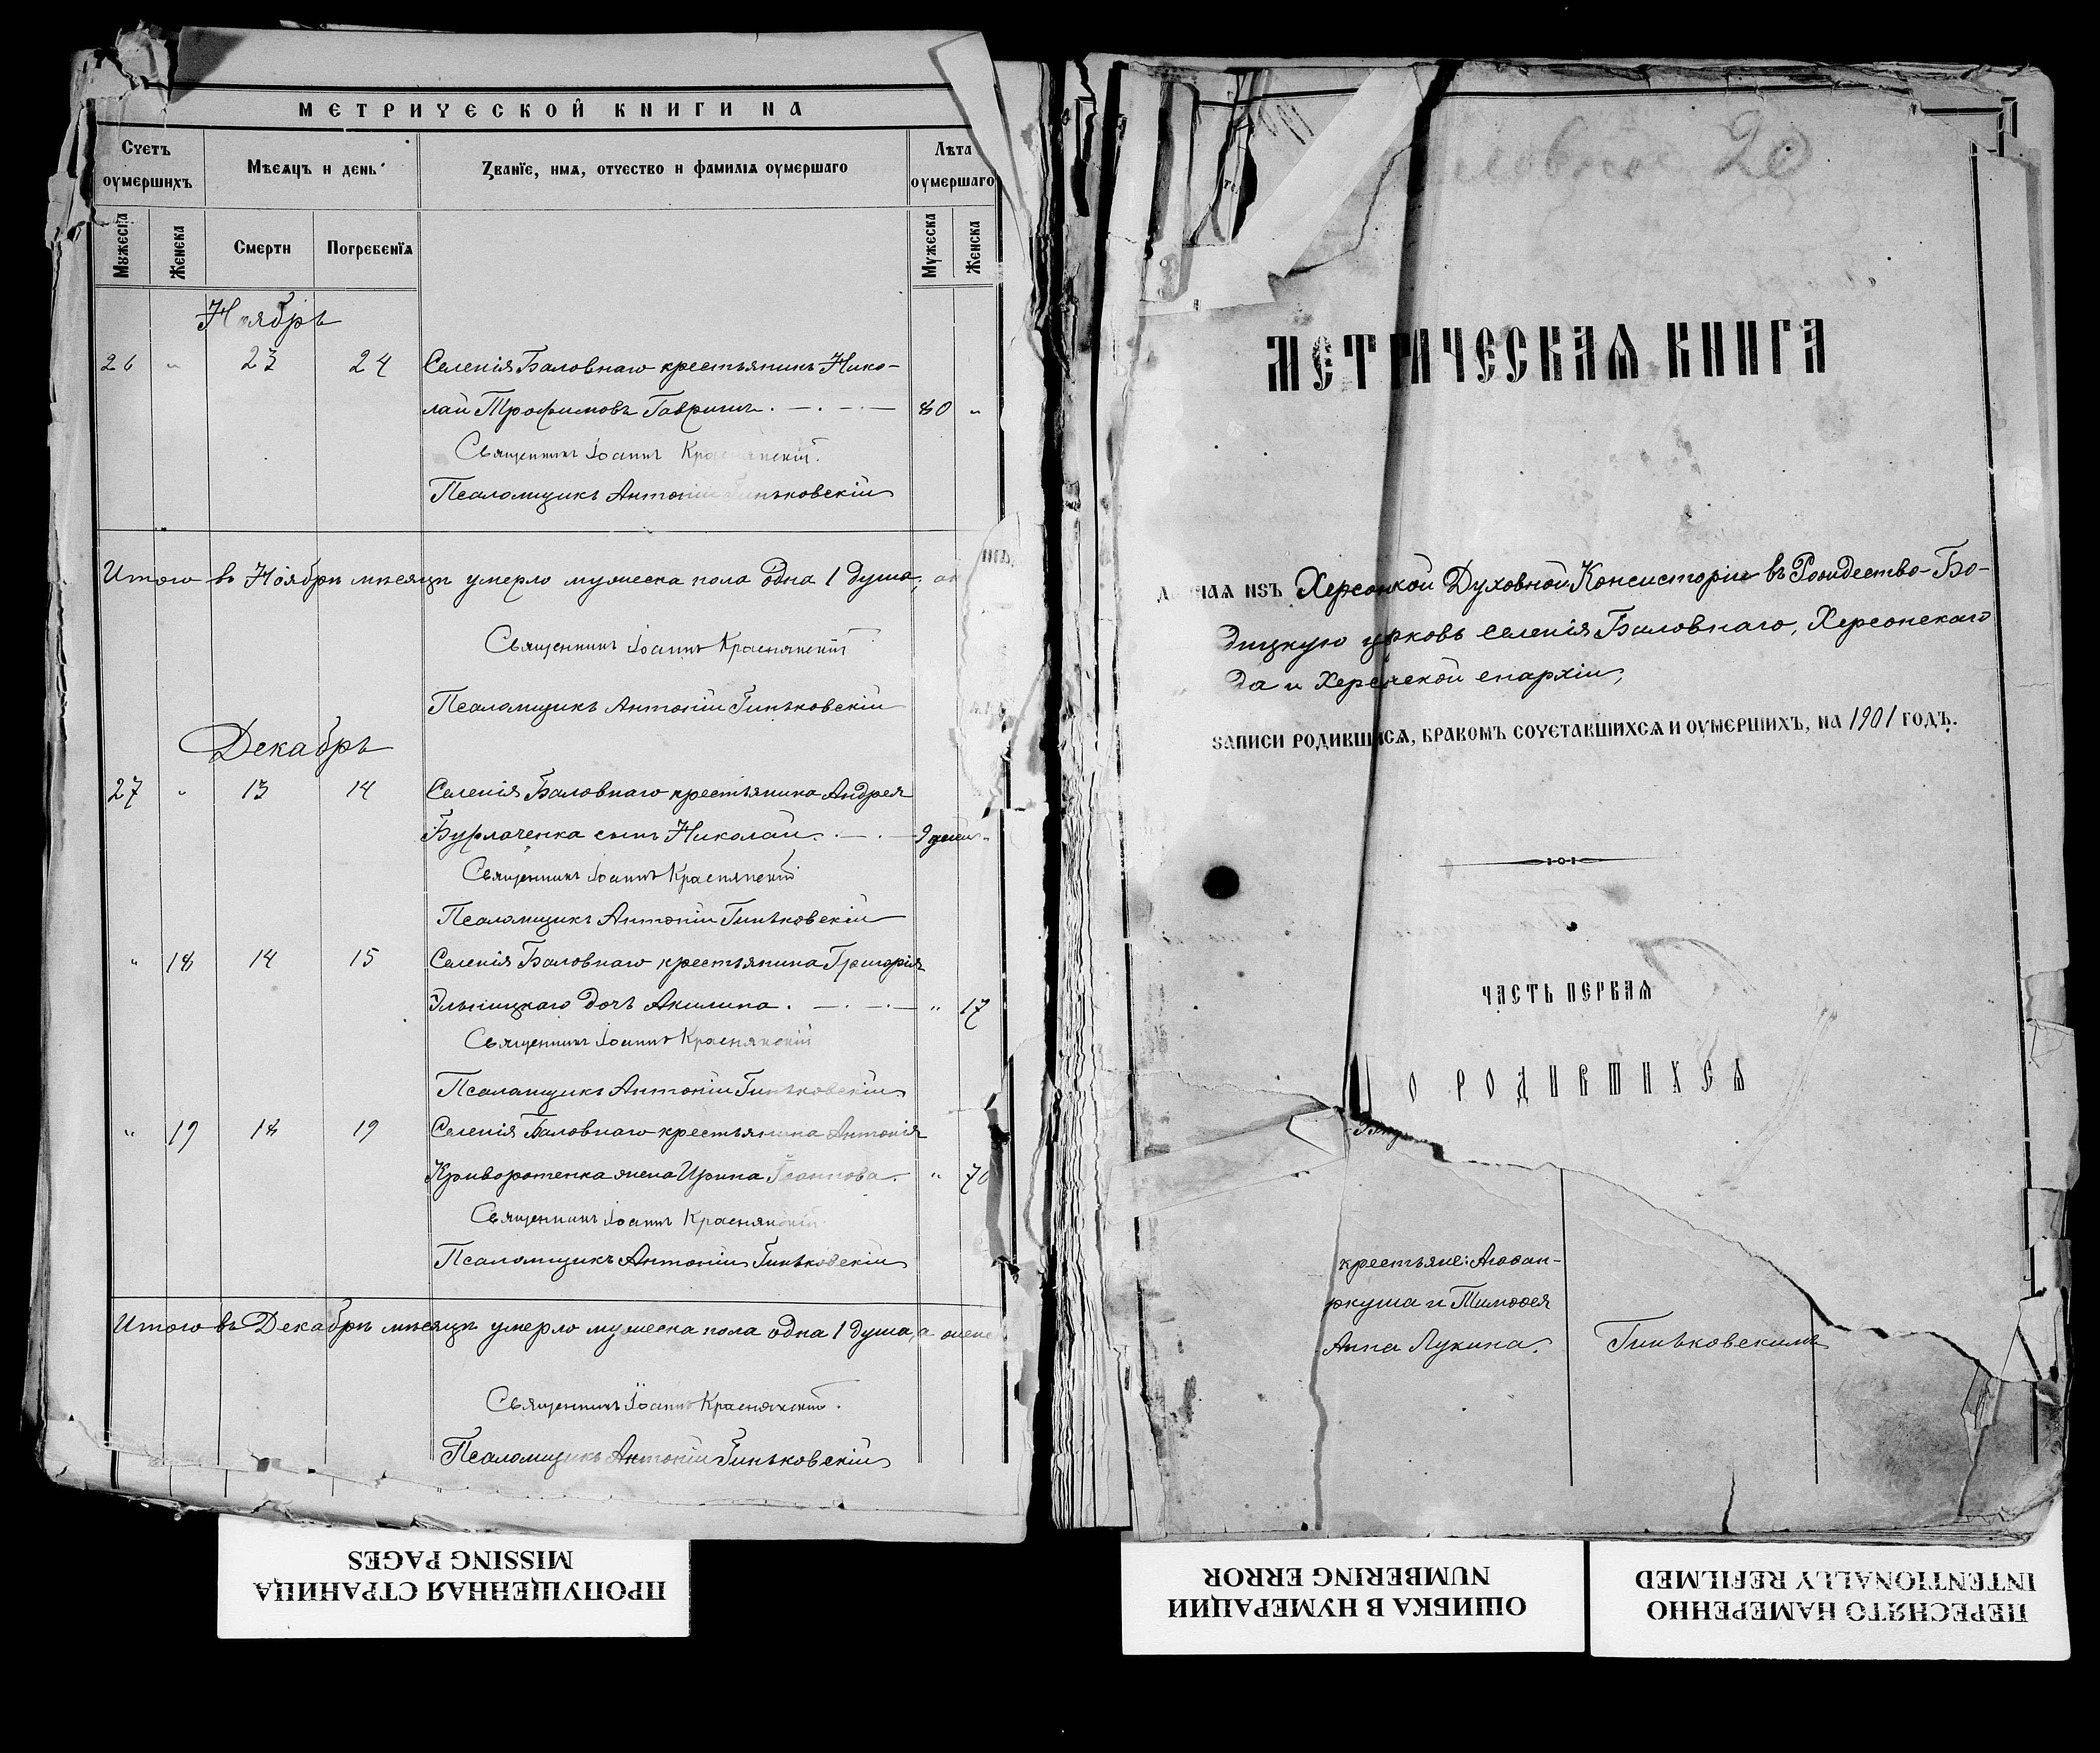 МЕТРИЧЕСКОЙ КНИГИ НА
Счетъ оумершихъ
Мѣсяцъ и день
Званїе, имя, отчество и фамилія оумершаго
Лѣта оумершаго
Мужеска
Женска
Смерти
Погребенїя
Мужеска
Женска
Ноябрь
26 " 23 24 Селенія Баловнаго крестьянинъ Нико-
лай Трофимовъ Гавришъ. 80 "
Священникъ Іоаннъ Краснянскій.
Псаломщикъ Антоній Гиньковскій
Итого въ Ноябрѣ мѣсяцѣ умерло мужеска пола одна 1 душа,
Священникъ Іоаннъ Краснянскій
Псаломщикъ Антоній Гиньковскій
Декабрь
27 " 13 14 Селенія Баловнаго крестьянина Андрея
Бурлаченка сынъ Николай. 9 дней "
Священникъ Іоаннъ Краснянскій
Псаломщикъ Антоній Гиньковскій
" 18 14 15 Селенія Баловнаго крестьянина Григорія
Ильницкаго дочь Акилина. " 17
Священникъ Іоаннъ Краснянскій
Псаломщикъ Антоній Гиньковскій
" 19 18 19 Селенія Баловнаго крестьянина Антонія
Криворотенка жена Ирина Іоаннова. " 70
Священникъ Іоаннъ Краснянскій
Псаломщикъ Антоній Гиньковскій
Итого въ Декабрѣ мѣсяцѣ умерло мужеска пола одна 1 душа, а
Священникъ Іоаннъ Краснянскій.
Псаломщикъ Антоній Гиньковскій
ПРОПУЩЕННАЯ СТРАНИЦА
MISSING PAGES
20
МЕТРИЧЕСКАЯ КНИГА
ИЗЪ Херсонской Духовной Консисторіи въ Рождество-Бо-
дицкую церковь селенія Баловнаго, Херсонскаго
да и Херсонской епархіи,
ЗАПИСИ РОДИВШИСЯ, БРАКОМЪ СОЧЕТАВШИХСЯ И ОУМЕРШИХЪ, НА 1901 ГОДЪ.
ЧАСТЬ ПЕРВАЯ
О РОДИВШИХСЯ
крестьяне: Аѳоан-
ркуша и Тимоѳея
Анна Лукина.
Гиньковскимъ
ОШИБКА В НУМЕРАЦИИ
NUMBERING ERROR
ПЕРЕСНЯТО НАМЕРЕННО
INTENTIONALLY REFILMED